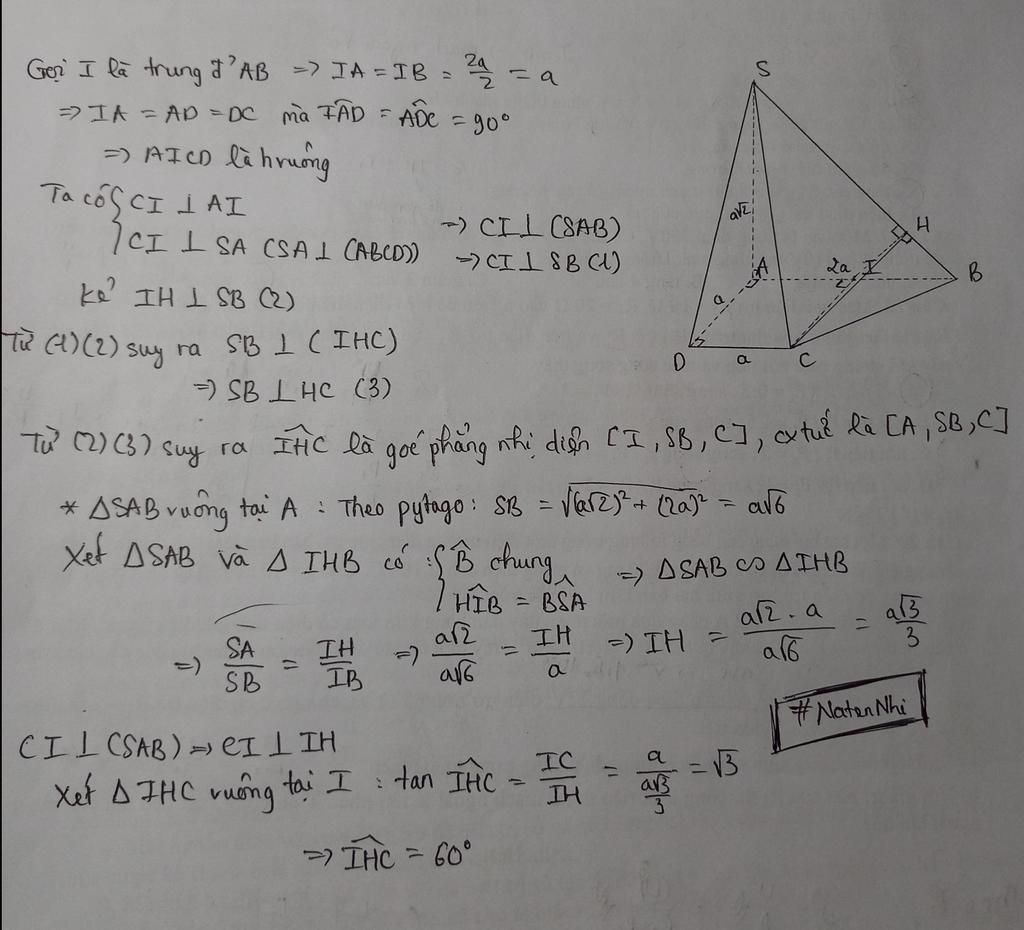 Gọi I là trung đ' AB => IA = IB = 2a/2 = a
=> IA = AD = DC mà IAD^ = ADC^ = 90°
=> AICD là h vuông
Ta có { CI ⊥ AI
CI ⊥ SA (SA ⊥ (ABCD)) => CI ⊥ (SAB)
=> CI ⊥ SB (1)
kẻ IH ⊥ SB (2)
Từ (1)(2) suy ra SB ⊥ (IHC)
=> SB ⊥ HC (3)
Từ (2)(3) suy ra IHC^ là góc phẳng nhị diện [I, SB, C], cx tức là [A, SB, C]
* ΔSAB vuông tại A : Theo pytago: SB = √((a√2)² + (2a)²) = a√6
Xét ΔSAB và Δ IHB có : { B^ chung
HIB^ = BSA^ => ΔSAB ∽ ΔIHB
=> SA/SB = IH/IB => a√2/a√6 = IH/a => IH = a√2 . a/a√6 = a√3/3
#NatanNhi
CI ⊥ (SAB) => CI ⊥ IH
Xét Δ IHC vuông tại I : tan IHC^ = IC/IH = a/(a√3/3) = √3
=> IHC^ = 60°
S
a√2
H
A
2a
I
B
a
D
a
C